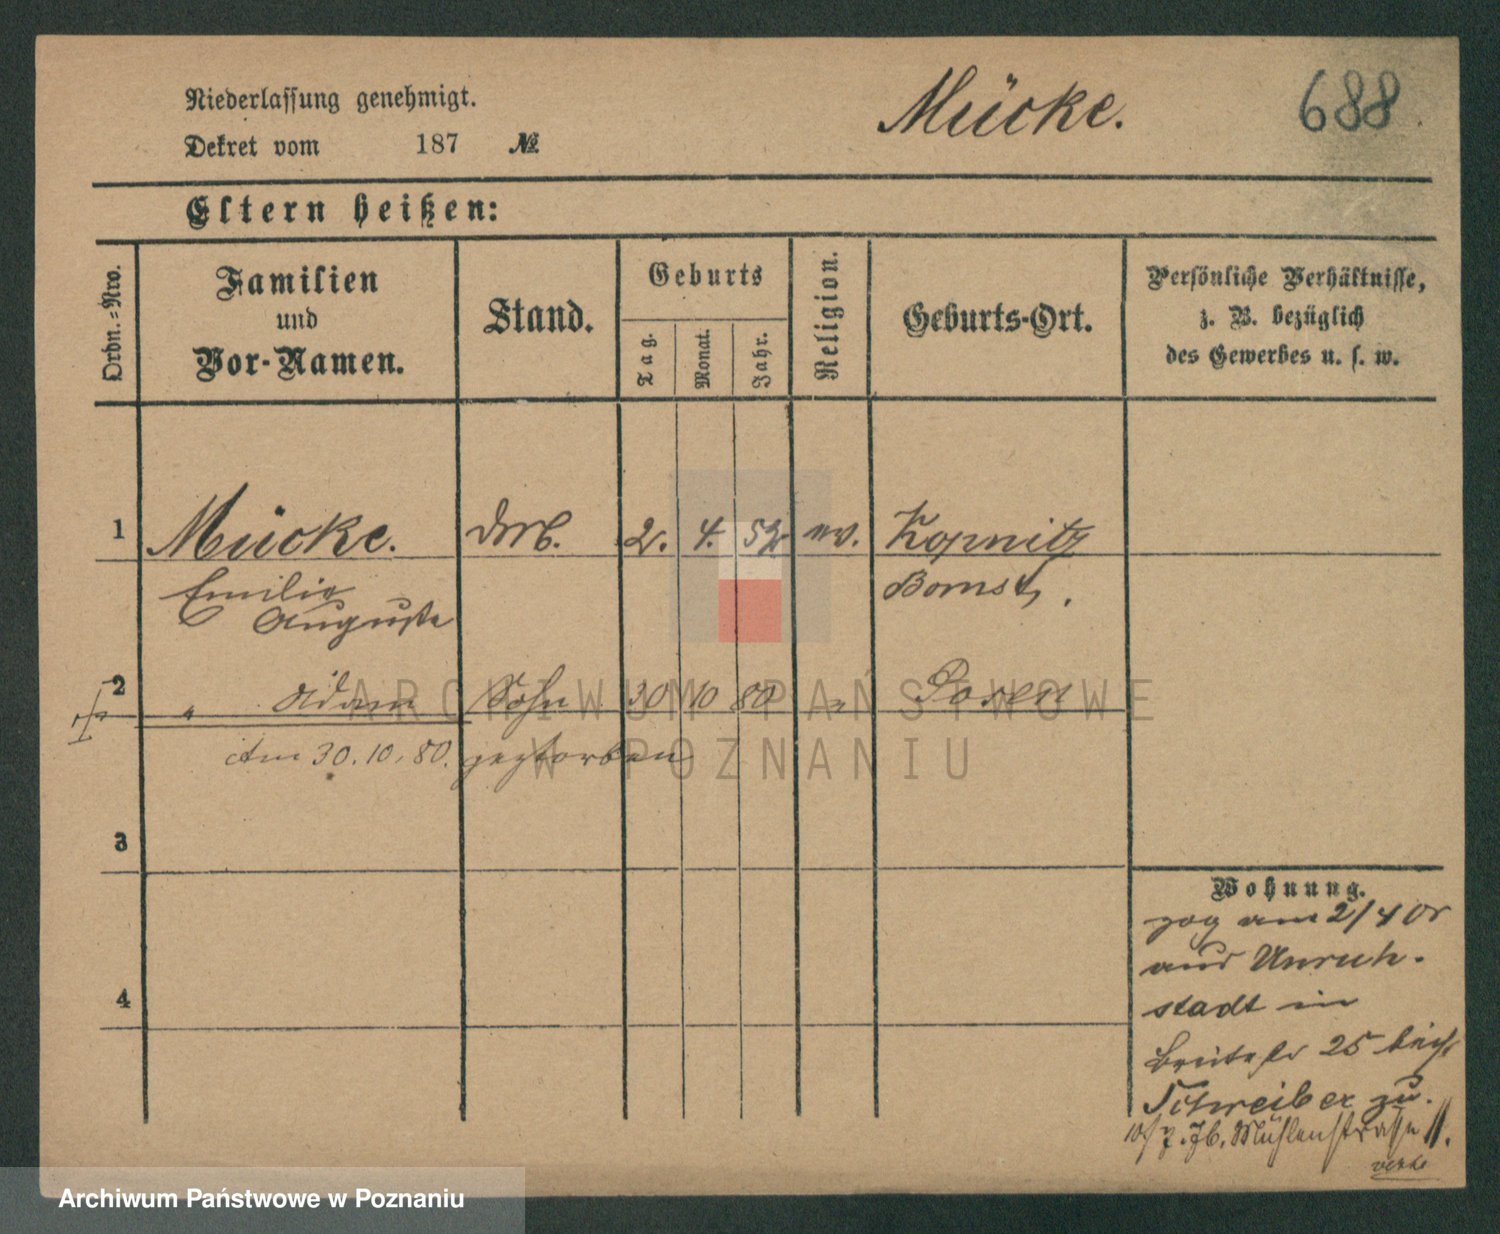 Niederlassung genehmigt.
Mücke.
688
Dekret vom 187 №
Eltern heißen:
Ordn.-Nro.
Familien
und
Vor-Namen.
Stand.
Geburts
Tag.
Monat.
Jahr.
Religion.
Geburts-Ort.
Persönliche Verhältnisse,
z. B. bezüglich
des Gewerbes u. s. w.
1 Mücke. 2. 4. 52 ev. Kopnitz
Emilie Bomst.
Auguste
2 " Adam Sohn 30 10 80 " Posen
Am 30.10.80. gestorben
3
4
Wohnung.
zog am 2/4 
aus Unruh-
stadt in
Breitestr 25 bei
Schreiber zu.
Mühlenstrasse 11.
ARCHIWUM PAŃSTWOWE
W POZNANIU
Archiwum Państwowe w Poznaniu